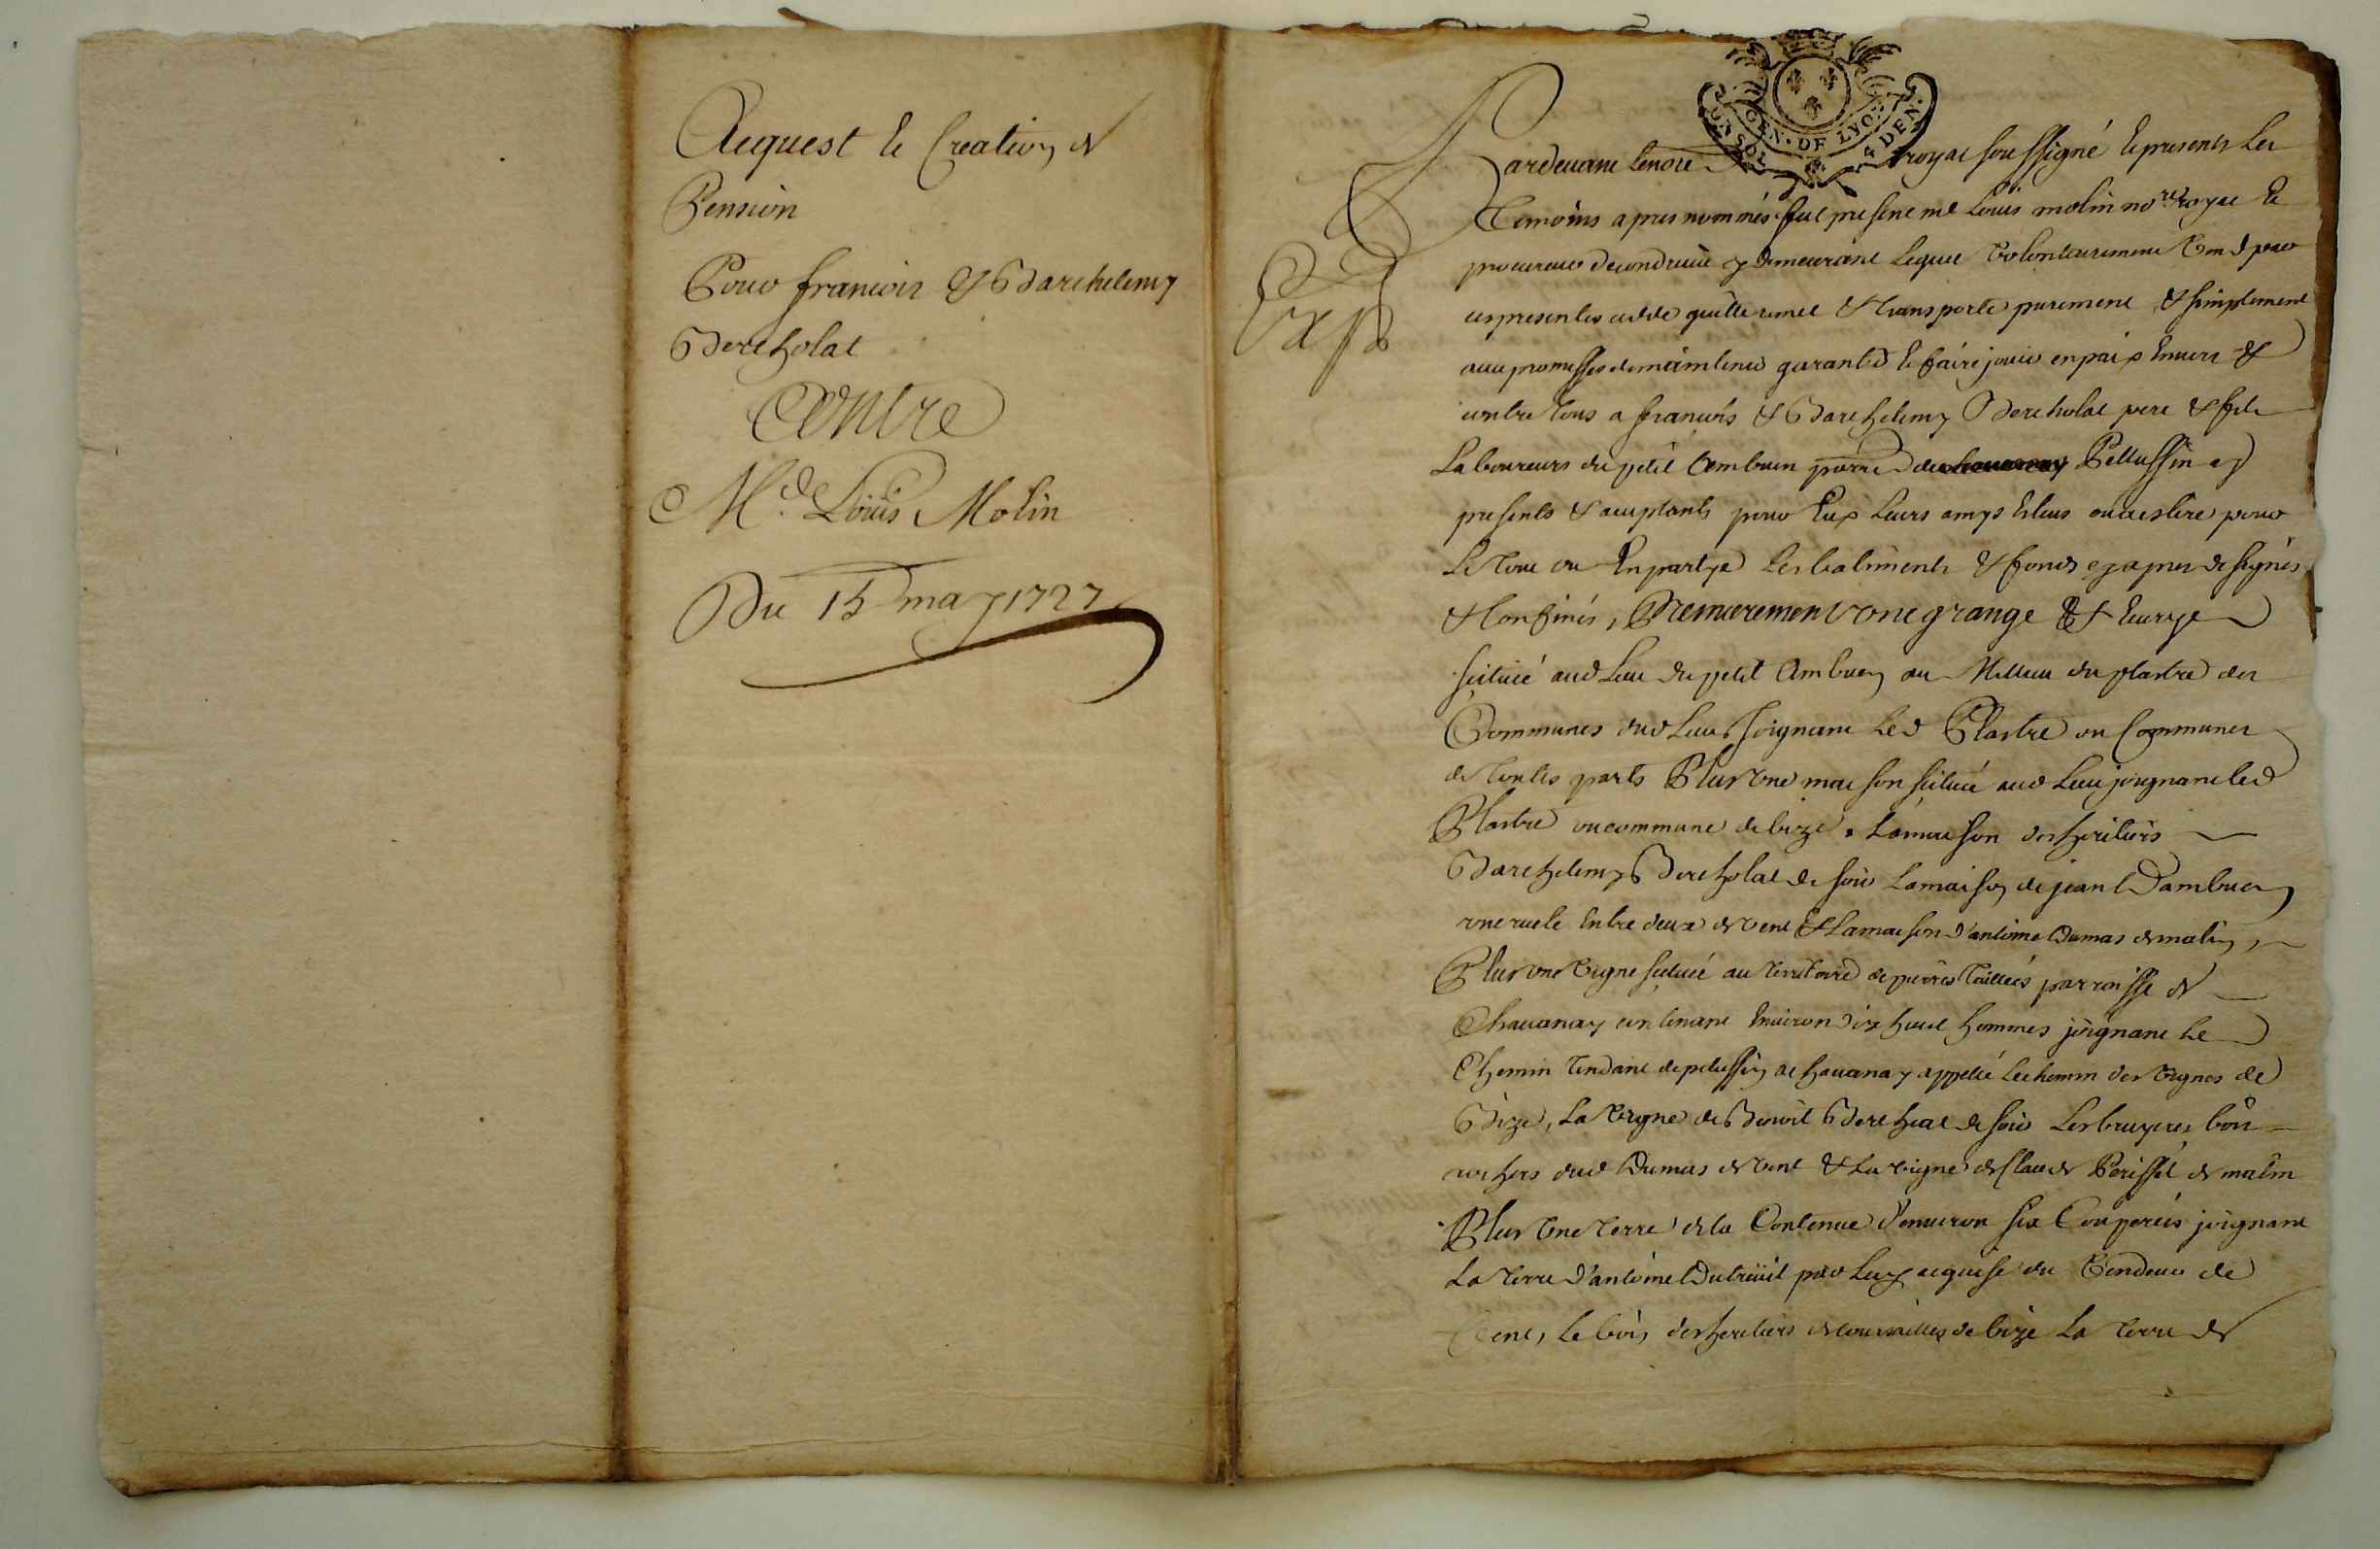 Acquest & Creation de
Pension
Pour francois & Barthelemy
Bertholat
Contre
Me. Louis Molin
Du 15 may 1727
GEN. DE LYON
SOL 4 DEN.
Exp
Pardevant le no.re royal soussigné & presents les
temoins apres nommés fut present me Louis molin no.re royal &
procureur de condrieu y demeurant lequel volontairement vend par
ces presentes cedde quitte remet & transporte purement & simplement
avec promesses de maintenir garantir & faire jouir en paix envers &
contre tous a francois & Barthelemy Bertholat pere & fils
Laboureurs du petit Embuen parr.e de Pellussin cy
presents & acceptants pour Eux Leurs amys Esleus ou a eslire pour
Le tout ou En partye Les batiments & fonds cy apres designés
& Confinés, Premierement Une grange & Ecurye
scituée aud Lieu du petit Ambuen au Millieu du plastre des
Communes dud Lieu Joignant Led Plastre ou Communes
de toutes parts Plus Une maison scituée aud Lieu joignant led
Plastre ou commune de bize, La maison des heritiers
Barthelemy Bertholat de soir La maison de jean Dambuen
une ruele Entre deux de vent & La maison d'antoine Dumas de matin,
Plus Une Vigne scituée au territoire de pierres taillées parroisse de
Chavanay contenant Environ dix huit hommes joignant Le
Chemin tendant de pelussin a chavanay appellé Le chemin des Vignes de
Bize, La Vigne de Benoit Bertholat de soir Les bruyeres bois
rochers dud Dumas de vent & La vigne de Claude Perissel de matin
Plus Une terre de la Contenue d'environ six Couperées joignant
La terre d'antoine Dutreüil par Luy acquise du Vendeur de
Vent, Le bois des heritiers de bize La terre de